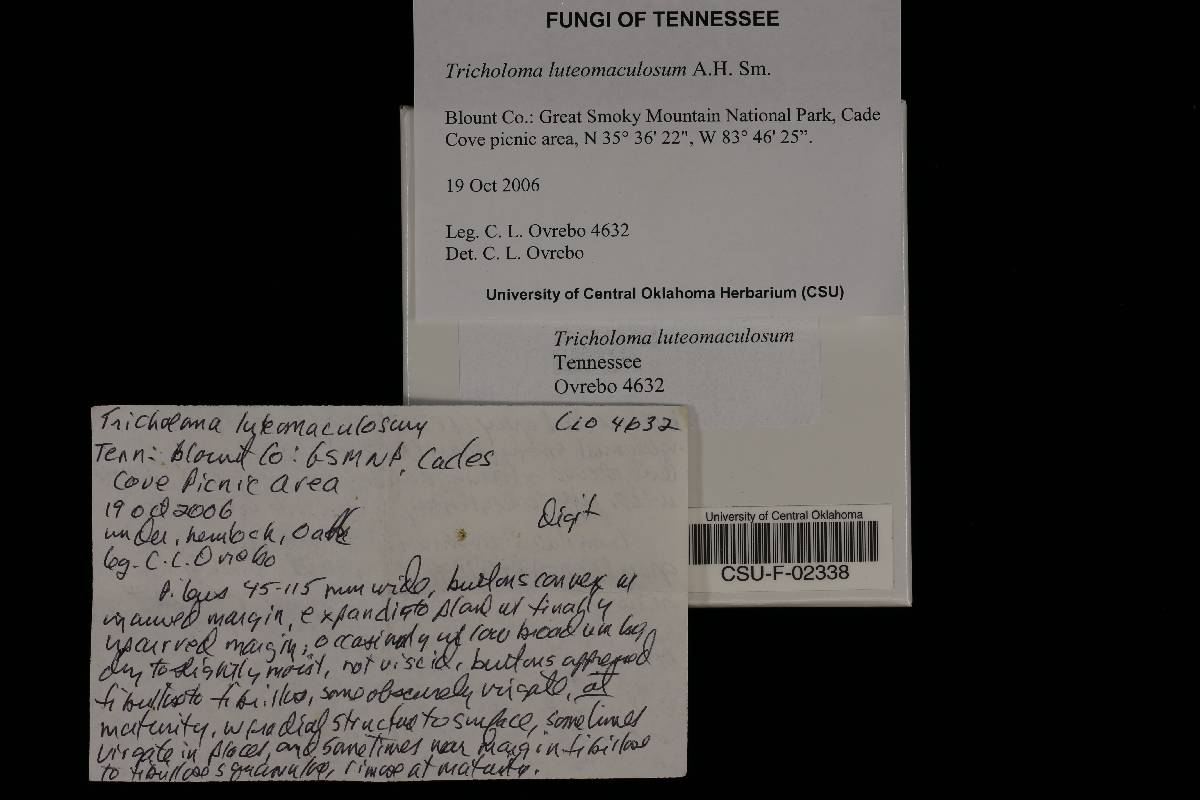 FUNGI OF TENNESSEE
Tricholoma luteomaculosum A.H. Sm.
Blount Co.: Great Smoky Mountain National Park, Cade
Cove picnic area, N 35° 36' 22", W 83° 46' 25”.
19 Oct 2006
Leg. C. L. Ovrebo 4632
Det. C. L. Ovrebo
University of Central Oklahoma Herbarium (CSU)
Tricholoma luteomaculosum
Tennessee
Ovrebo 4632
Tricholoma luteomaculosum CLO 4632
Tenn: Blount Co: GSMNP, Cades
Cove Picnic area
19 Oct 2006
Digit
under, hemlock, Oak
leg. C.L. Ovrebo
Pileus 45-115 mm wide, buttons convex w
incurved margin, expanding to plane w finally
upcurved margin, occasionally w low broad umbo,
dry to slightly moist, not viscid, buttons appressed
fibrillose to fibrillose, some obscurely virgate, at
maturity, w radial structure to surface, sometimes
virgate in places, and sometimes near margin fibrillose
to fibrillose squamulose, rimose at maturity.
University of Central Oklahoma
CSU-F-02338